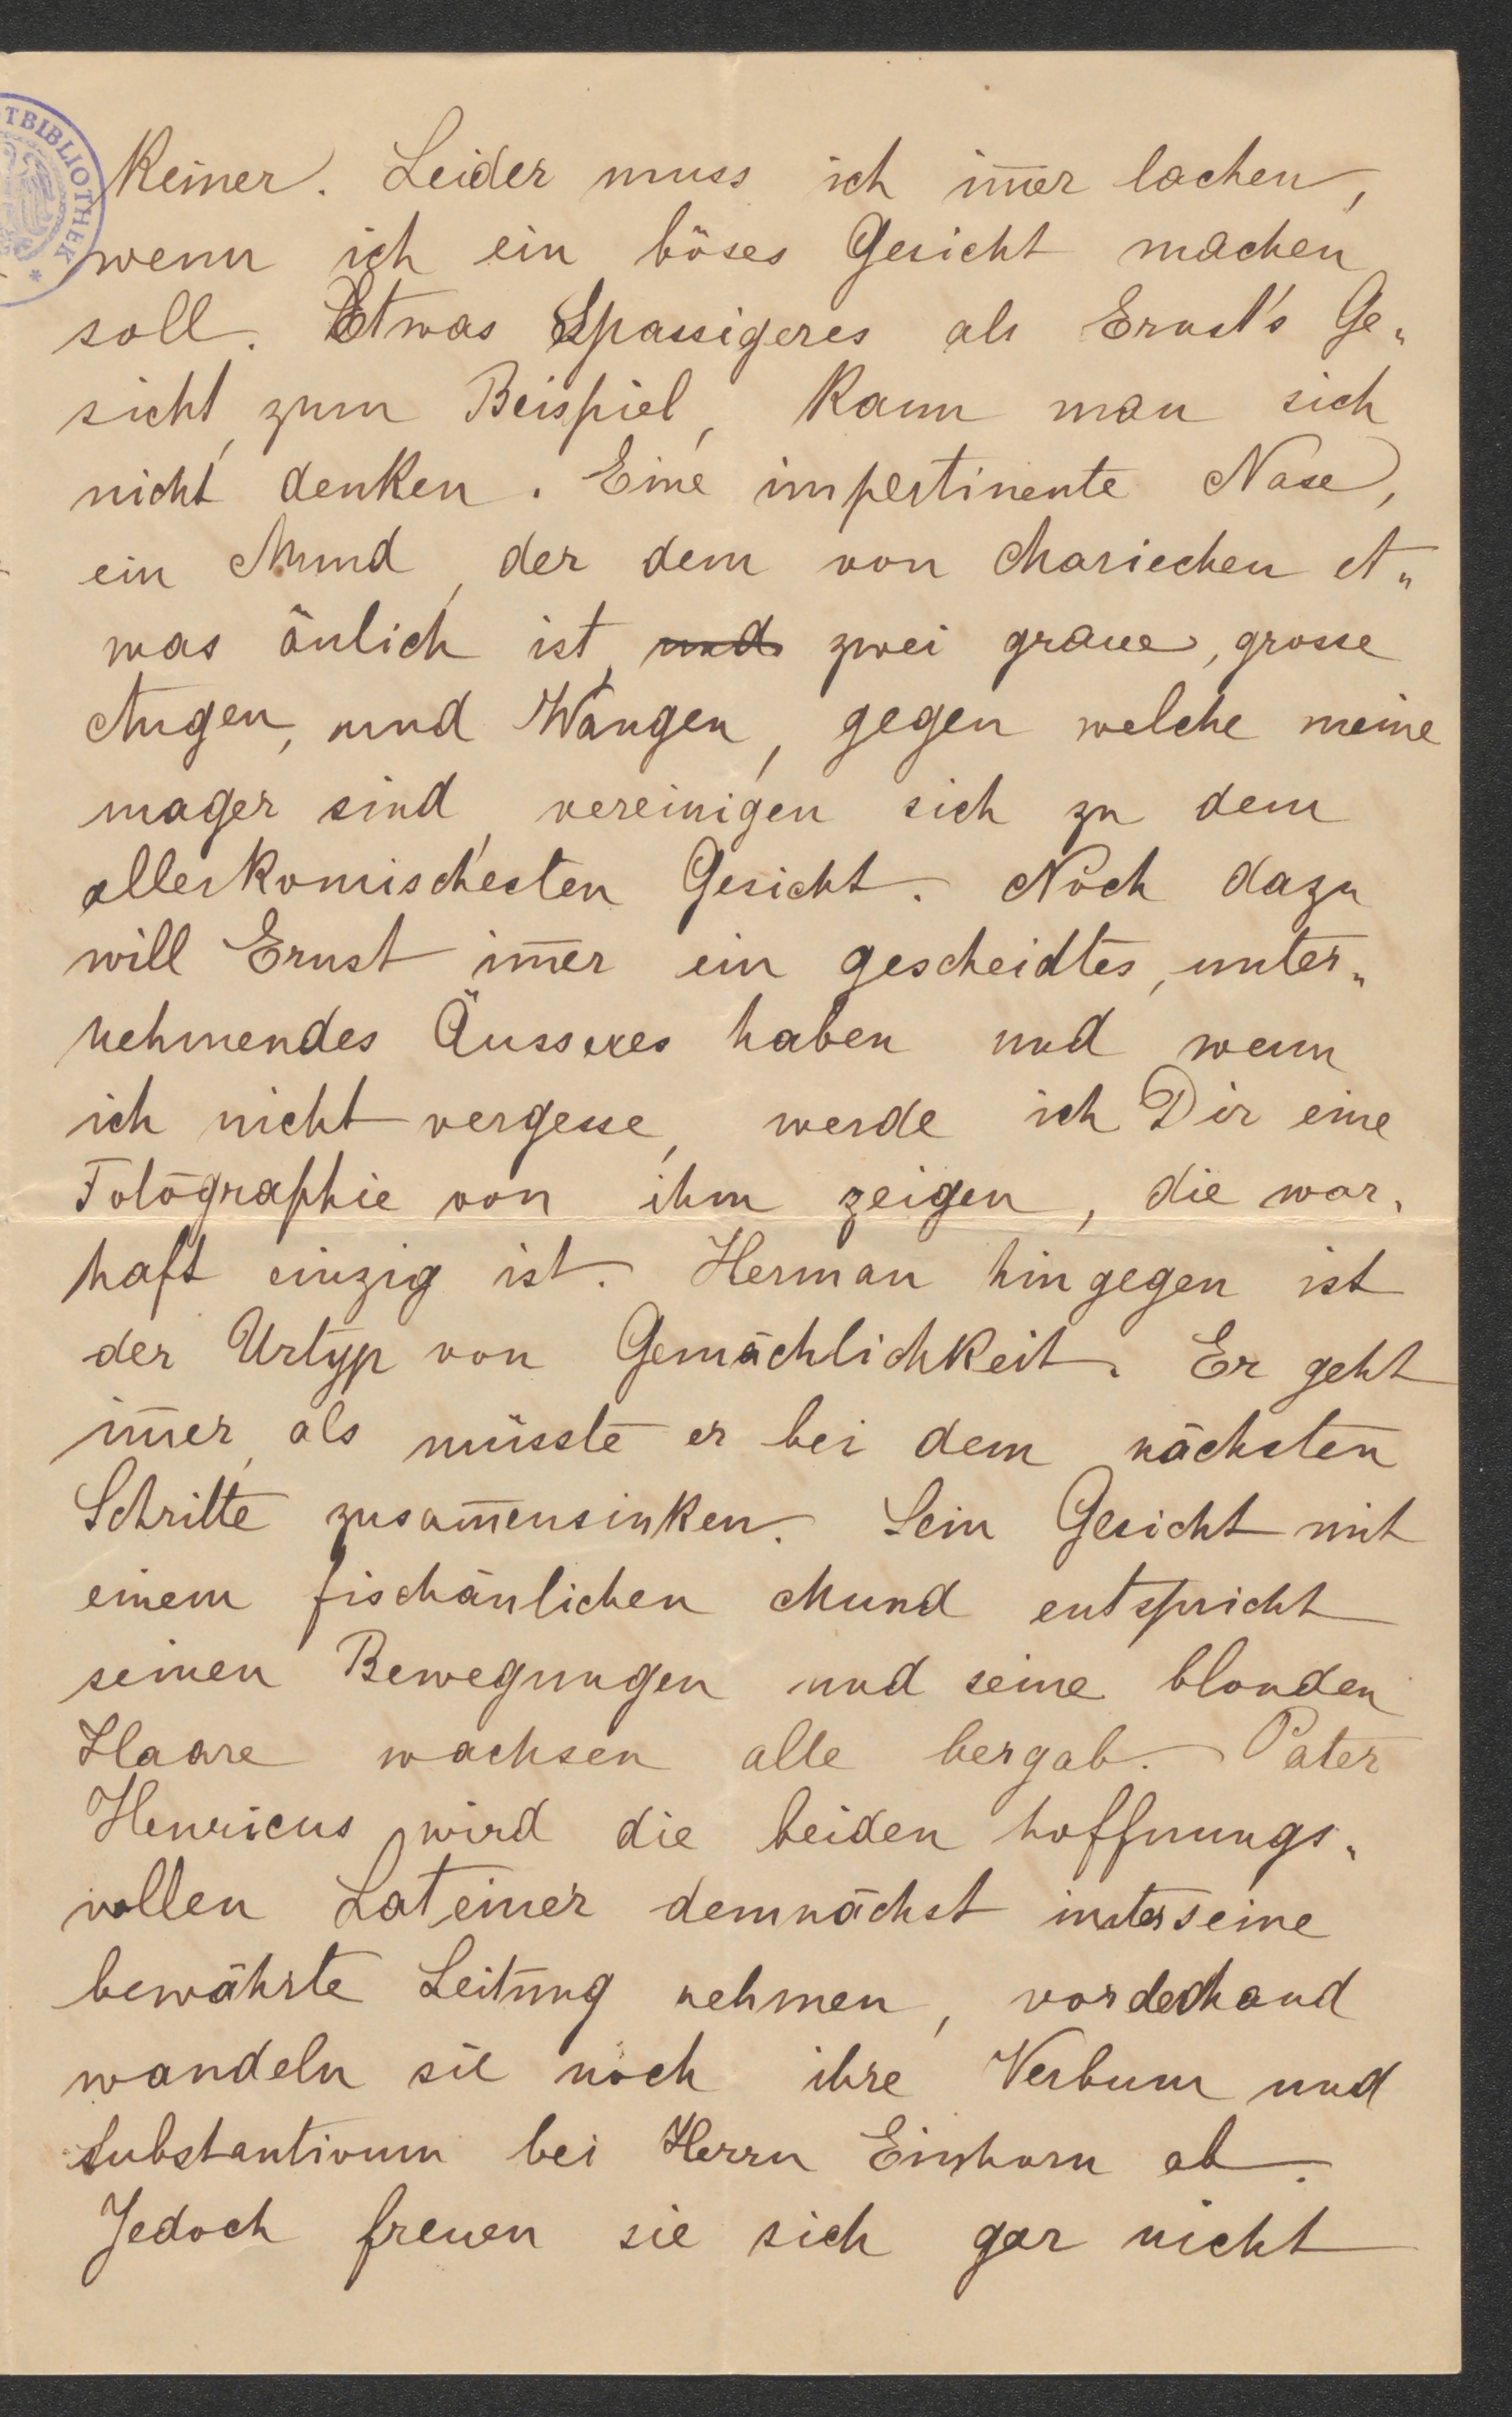 TBIBLIOTHEK *
keiner. Leider muss ich im̅er lachen,
wenn ich ein böses Gesicht machen
soll. Etwas Spassigeres als Ernst's Ge„
sicht, zum Beispiel, kann man sich
nicht denken. Eine impertinente Nase,
ein Mund, der dem von Mariechen et„
was änlich ist, und zwei graue, grosse
Augen, und Wangen, gegen welche meine
mager sind, vereinigen sich zu dem
allerkomischesten Gesicht. Noch dazu
will Ernst im̅er ein gescheidtes, unter„
nehmendes Äusseres haben und wenn
ich nicht vergesse, werde ich Dir eine
Fotographie von ihm zeigen, die war„
haft einzig ist. Herman hingegen ist
der Urtyp von Gemächlichkeit. Er geht
im̅er, als müsste er bei dem nächsten
Schritte zusam̅ensinken. Sein Gesicht mit
einem fischänlichen Mund entspricht
seinen Bewegungen und seine blonden
Haare wachsen alle bergab. Pater
Henricus wird die beiden hoffnungs„
vollen Lateiner demnächst unter seine
bewährte Leitung nehmen, vorderhand
wandeln sie noch ihre Verbum und
Substantivum bei Herrn Einhorn ab.
Jedoch freuen sie sich gar nicht